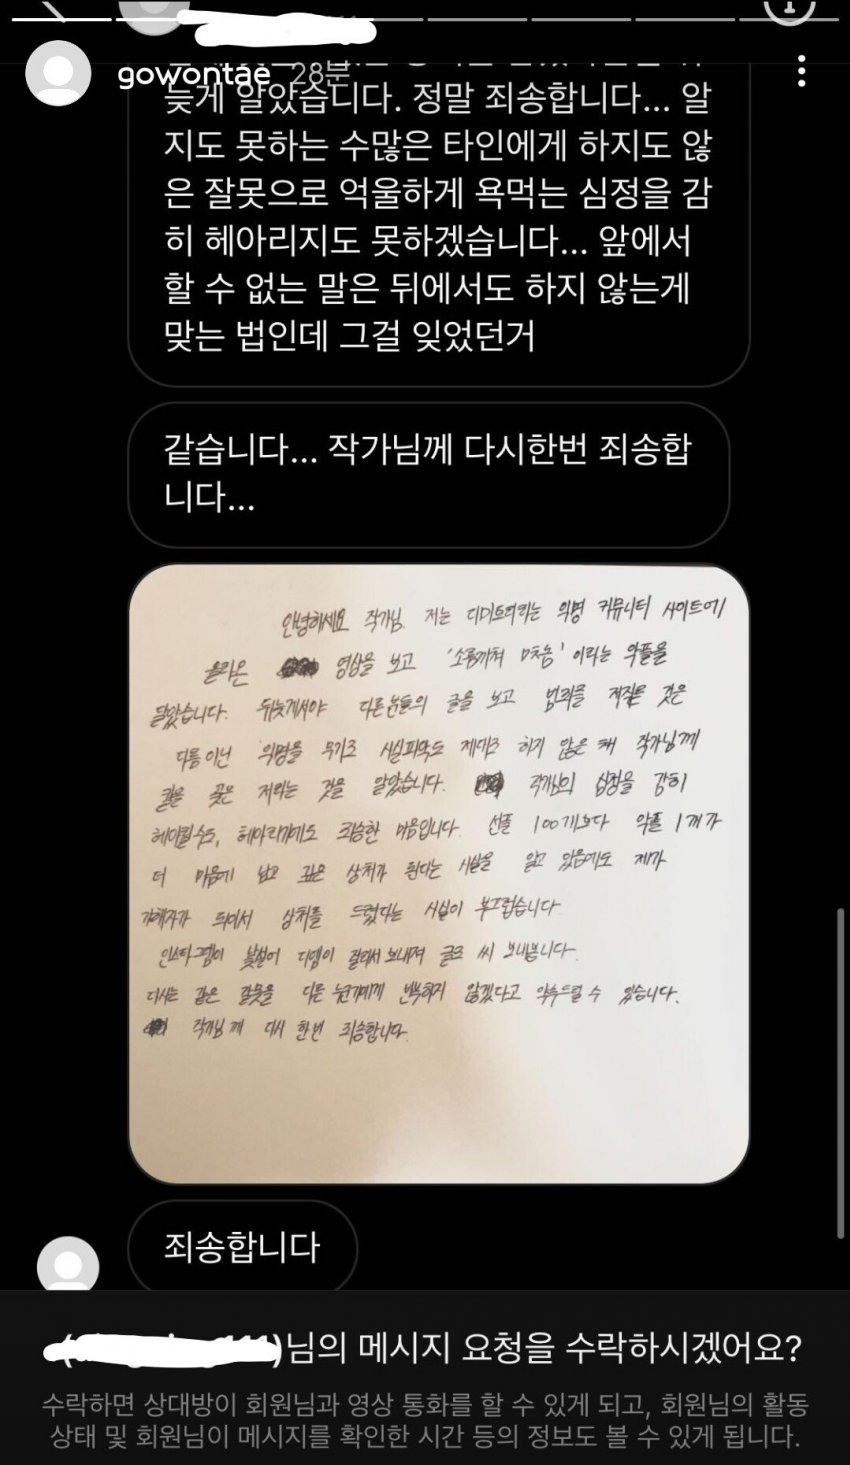 gowontae 28분
늦게 알았습니다. 정말 죄송합니다... 알
지도 못하는 수많은 타인에게 하지도 않
은 잘못으로 억울하게 욕먹는 심정을 감
히 헤아리지도 못하겠습니다... 앞에서
할 수 없는 말은 뒤에서도 하지 않는게
맞는 법인데 그걸 잊었던거
같습니다... 작가님께 다시한번 죄송합
니다...
안녕하세요 작가님. 저는 디미토리라는 익명 커뮤니티 사이트에
올라온 영상을 보고 '소름끼쳐 미친놈' 이라는 악플을
달았습니다. 뒤늦게서야 다른분들의 글을 보고 범죄를 저지른 것은
다름아닌 익명을 무기로 사실파악도 제대로 하지 않은 채 작가님께
칼을 꽂은 저라는 것을 알았습니다. 작가님의 심정을 감히
헤아릴수도, 헤아리기에도 죄송한 마음입니다. 선플 100개보다 악플 1개가
더 마음에 남고 깊은 상처가 된다는 사실을 알고 있음에도 제가
가해자가 되어서 상처를 드렸다는 사실이 부끄럽습니다
인스타그램이 낯설어 디엠이 잘려서 보내져 글로 써 보내봅니다.
다시는 같은 잘못을 다른 누군가에게 반복하지 않겠다고 약속드릴 수 있습니다.
작가님께 다시 한번 죄송합니다.
죄송합니다
)님의 메시지 요청을 수락하시겠어요?
수락하면 상대방이 회원님과 영상 통화를 할 수 있게 되고, 회원님의 활동
상태 및 회원님이 메시지를 확인한 시간 등의 정보도 볼 수 있게 됩니다.